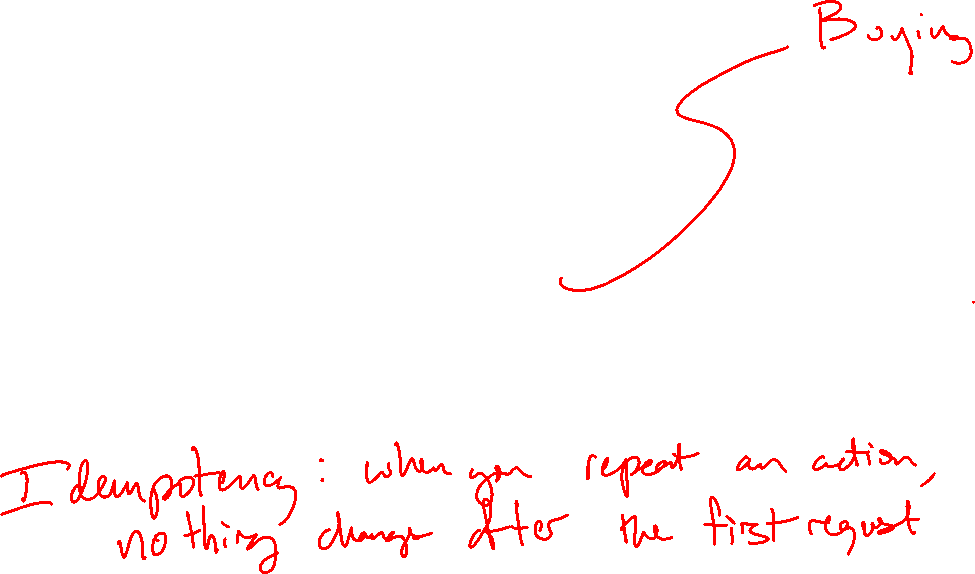 Buying
Idempotency: when you repeat an action,
nothing change after the first request